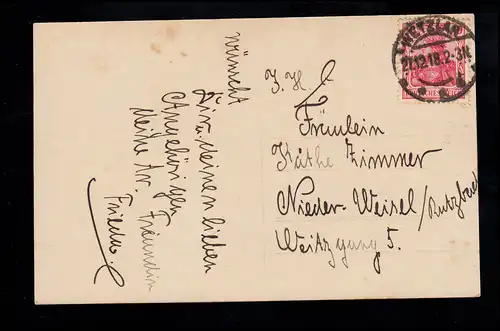 wünscht
Dir u. deinen lieben
Angehörigen
Deine tr. Freundin
Frieda.
WETZLAR
27.12.18. 2-3N.
Fräulein
Käthe Zimmer
Nieder-Weisel / Butzbach
Weitzgang 5.